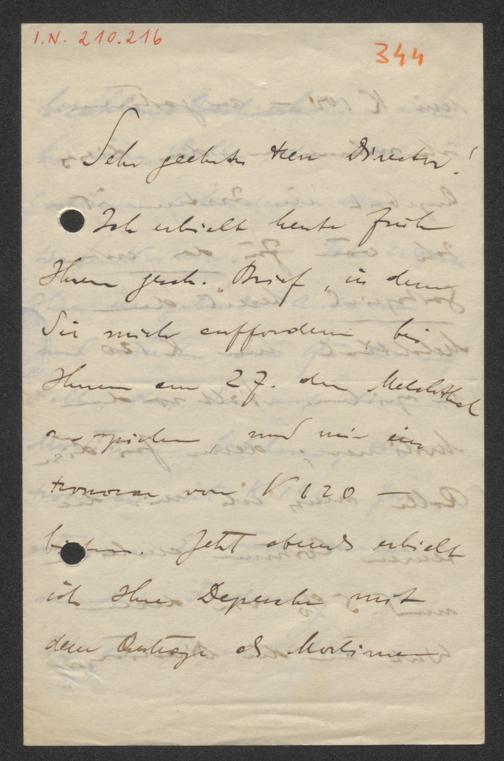 I.N. 210.216
344
Sehr geehrter Herr Director!
Ich erhielt heute früh
Ihren gesch. Brief, in dem
Sie mich auffordern bei
Ihnen am 27. den Melchthal
zu spielen und mir ein
Honorar von K 120 —
bieten. Jetzt abends erhielt
ich Ihre Depesche mit
dem Antrage als Mortimer